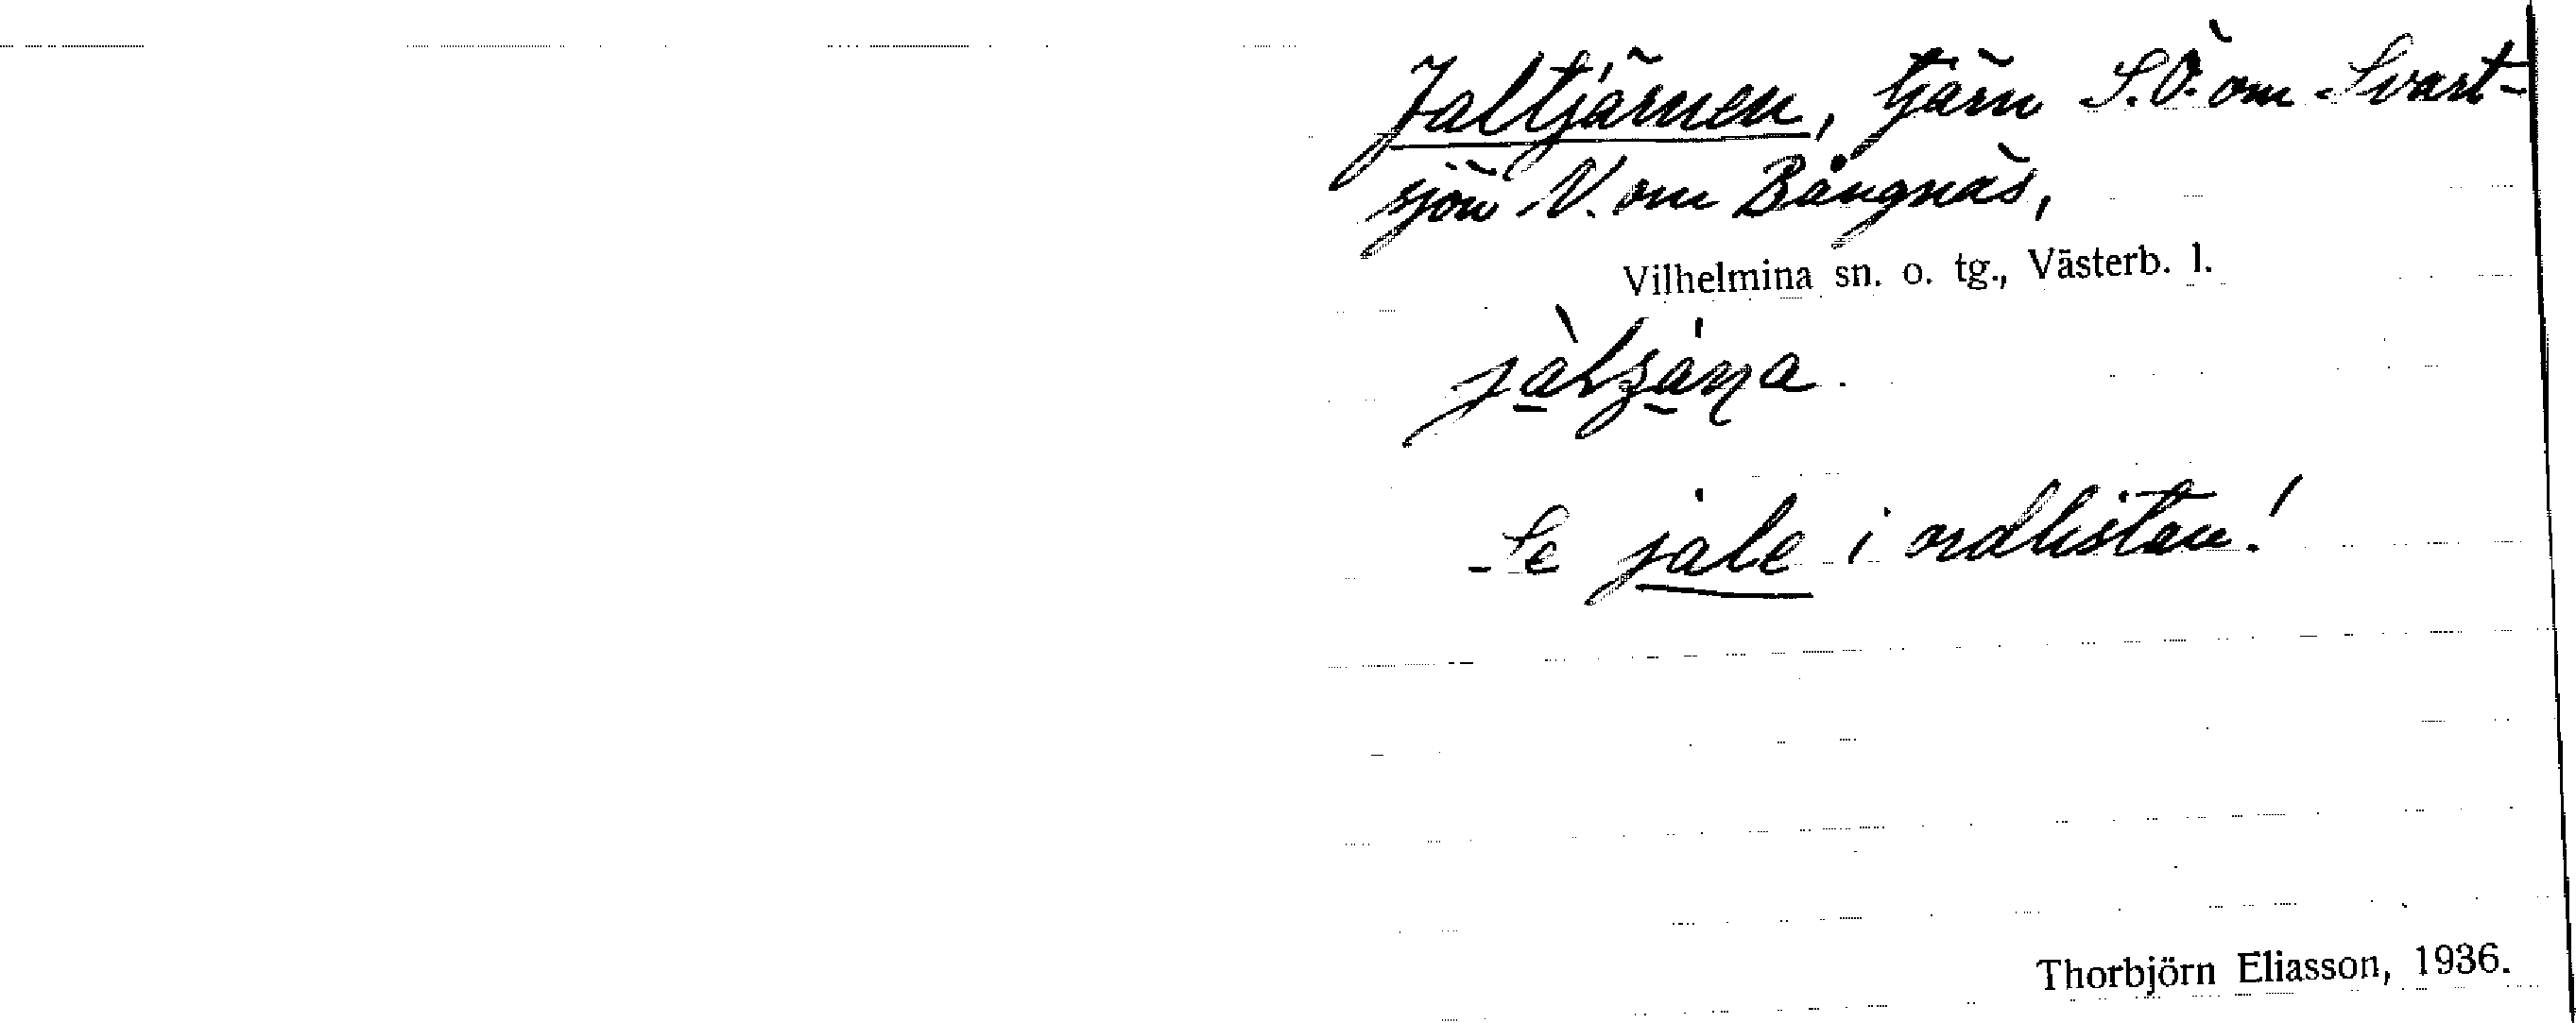 Jaltjärnen, tjärn S.Ö. om Svart-
sjön V. om Bångnäs,
Vilhelmina sn. o. tg., Västerb. l.
Se jale i ordlistan!
Thorbjörn Eliasson, 1936.